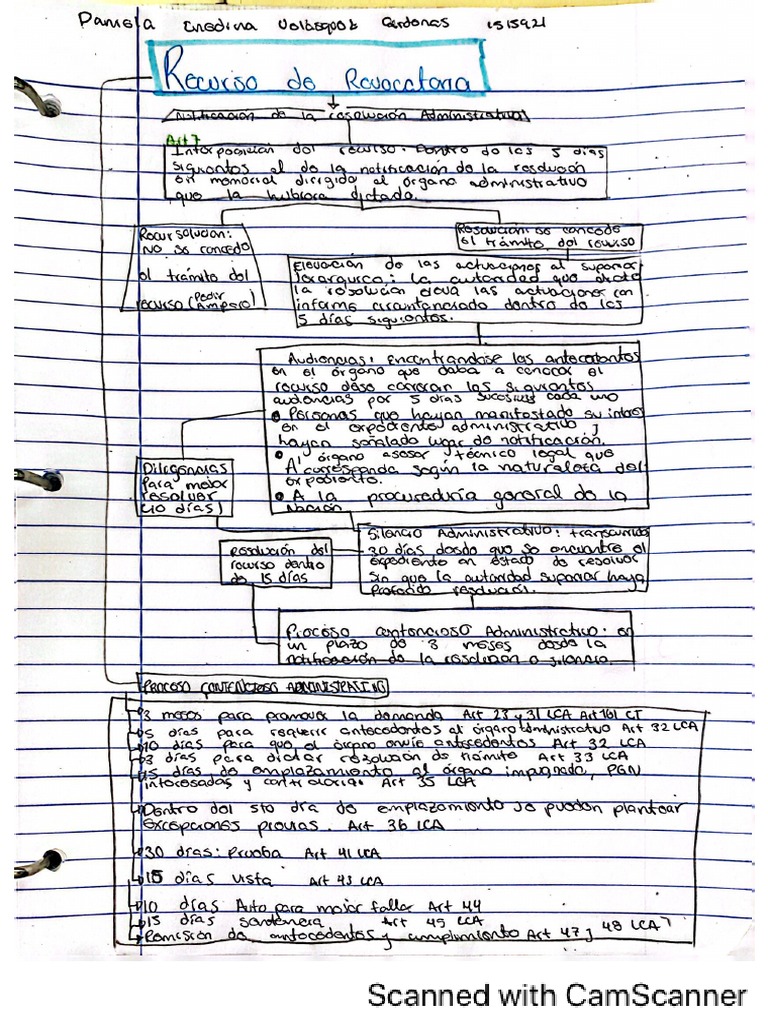 Pamela Enedina Velásquez Cardenas 1515921
Recurso de Revocatoria
Notificación de la resolución Administrativa
Art 7
Interposición del recurso. Dentro de los 5 días
siguientes al de la notificación de la resolución
en memorial dirigido al órgano administrativo
que la hubiera dictado.
Resolución:
NO se concede
el trámite del
recurso (Pedir
Amparo)
Resolución: se concede
el trámite del recurso
Elevación de las actuaciones al superior
jerarquico: la autoridad que dicto
la resolución eleva las actuaciones con
informe circunstanciado dentro de los
5 días siguientes.
Audiencias: Encontrandose los antecedentes
en el órgano que daba a conocer el
recurso dese correran las siguientes
audiencias por 5 días sucesivos cada uno
• Personas que hayan manifestado su interes
en el expediente administrativo y
hayan señalado lugar de notificación.
• Al órgano asesor y técnico legal que
A corresponda según la naturaleza del
expediente.
• A la procuraduría general de la
Nación
Diligencias
Para mejor
resolver
(10 días)
Resolución del
recurso dentro
de 15 días
Silencio Administrativo: transcurridos
30 días desde que se encuentre el
expediente en estado de resolver
Sin que la autoridad superior haya
Proferido resolución.
Proceso contencioso Administrativo: en
un plazo de 3 meses desde la
notificación de la resolución o silencio.
PROCESO CONTENCIOSO ADMINISTRATIVO
3 meses para promover la demanda Art 23 y 31 LCA Art 161 CT
5 días para requerir antecedentes al órgano administrativo Art 32 LCA
10 días para que el órgano envie antecedentes Art 32 LCA
3 días para dictar resolución de trámite Art 33 LCA
15 días de emplazamiento al órgano impugnado, PGN
interesadas y contraloria. Art 35 LCA
Dentro del 5to día de emplazamiento se pueden plantear
excepciones previas. Art 36 LCA
30 días: Prueba Art 41 LCA
15 días vista Art 43 LCA
10 días Auto para mejor fallar Art 44
15 días sentencia Art 45 LCA
Remisión de antecedentes y cumplimiento Art 47 y 48 LCA
Scanned with CamScanner